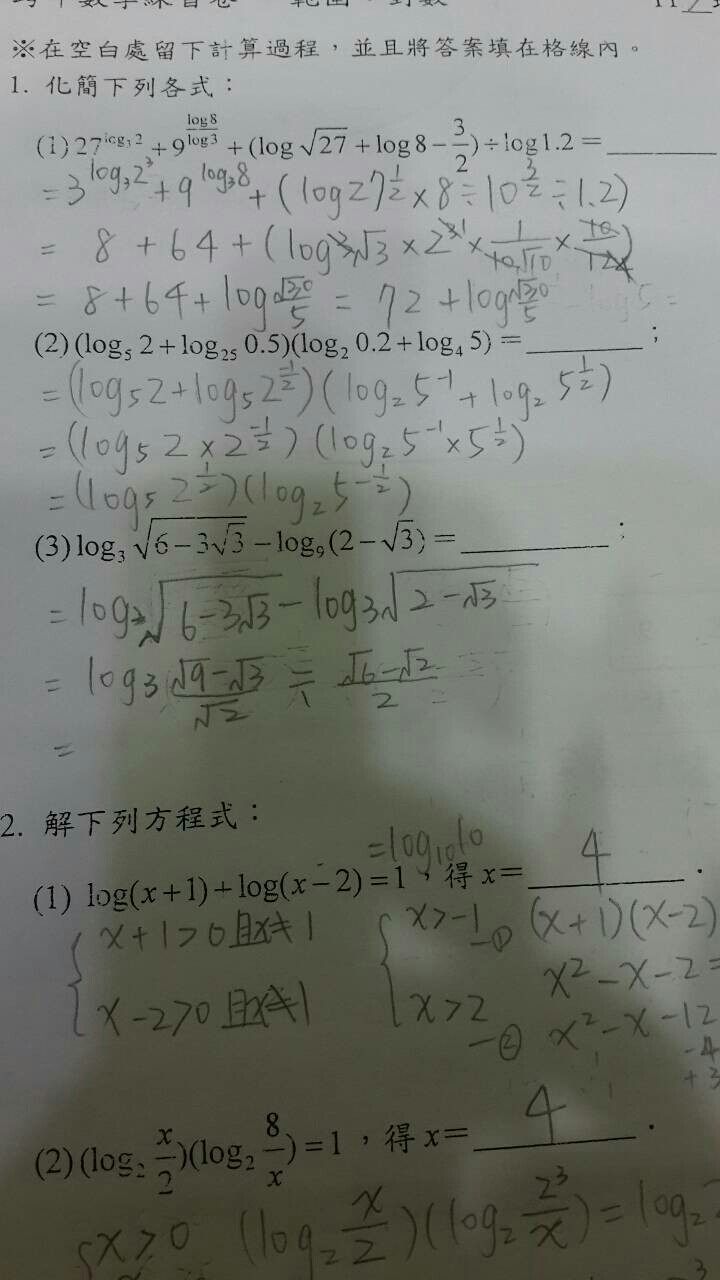 ※在空白處留下計算過程，並且將答案填在格線內。
1. 化簡下列各式：
(1) 27^{log_3 2} + 9^{\frac{log 8}{log 3}} + (log √27 + log 8 - 3/2) ÷ log 1.2 = ________
= 3^{log_3 2^3} + 9^{log_3 8} + (log 27^{1/2} × 8 ÷ 10^{3/2} ÷ 1.2)
= 8 + 64 + (log 3√3 × 2^3 × 1/(10√10) × 10/12)
= 8 + 64 + log √30/5 = 72 + log √30/5
(2) (log_5 2 + log_25 0.5)(log_2 0.2 + log_4 5) = ________ ；
= (log_5 2 + log_5 2^{-1/2}) (log_2 5^{-1} + log_2 5^{1/2})
= (log_5 2 × 2^{-1/2}) (log_2 5^{-1} × 5^{1/2})
= (log_5 2^{1/2})(log_2 5^{-1/2})
(3) log_3 √(6-3√3) - log_9 (2-√3) = ________ ；
= log_3 √(6-3√3) - log_3 √(2-√3)
= log_3 (√9-√3)/√2 ÷ (√6-√2)/2
=
2. 解下列方程式：
= log_10 10
(1) log(x+1) + log(x-2) = 1，得 x = 4 .
{ x+1>0 且x≠1 { x>-1 -① (x+1)(x-2)
x-2>0 且x≠1 x>2 -② x²-x-2=
x²-x-12
-4
+3
(2) (log_2 x/2)(log_2 8/x) = 1，得 x = 4 .
{ x>0 (log_2 x/2)(log_2 2^3/x) = log_2